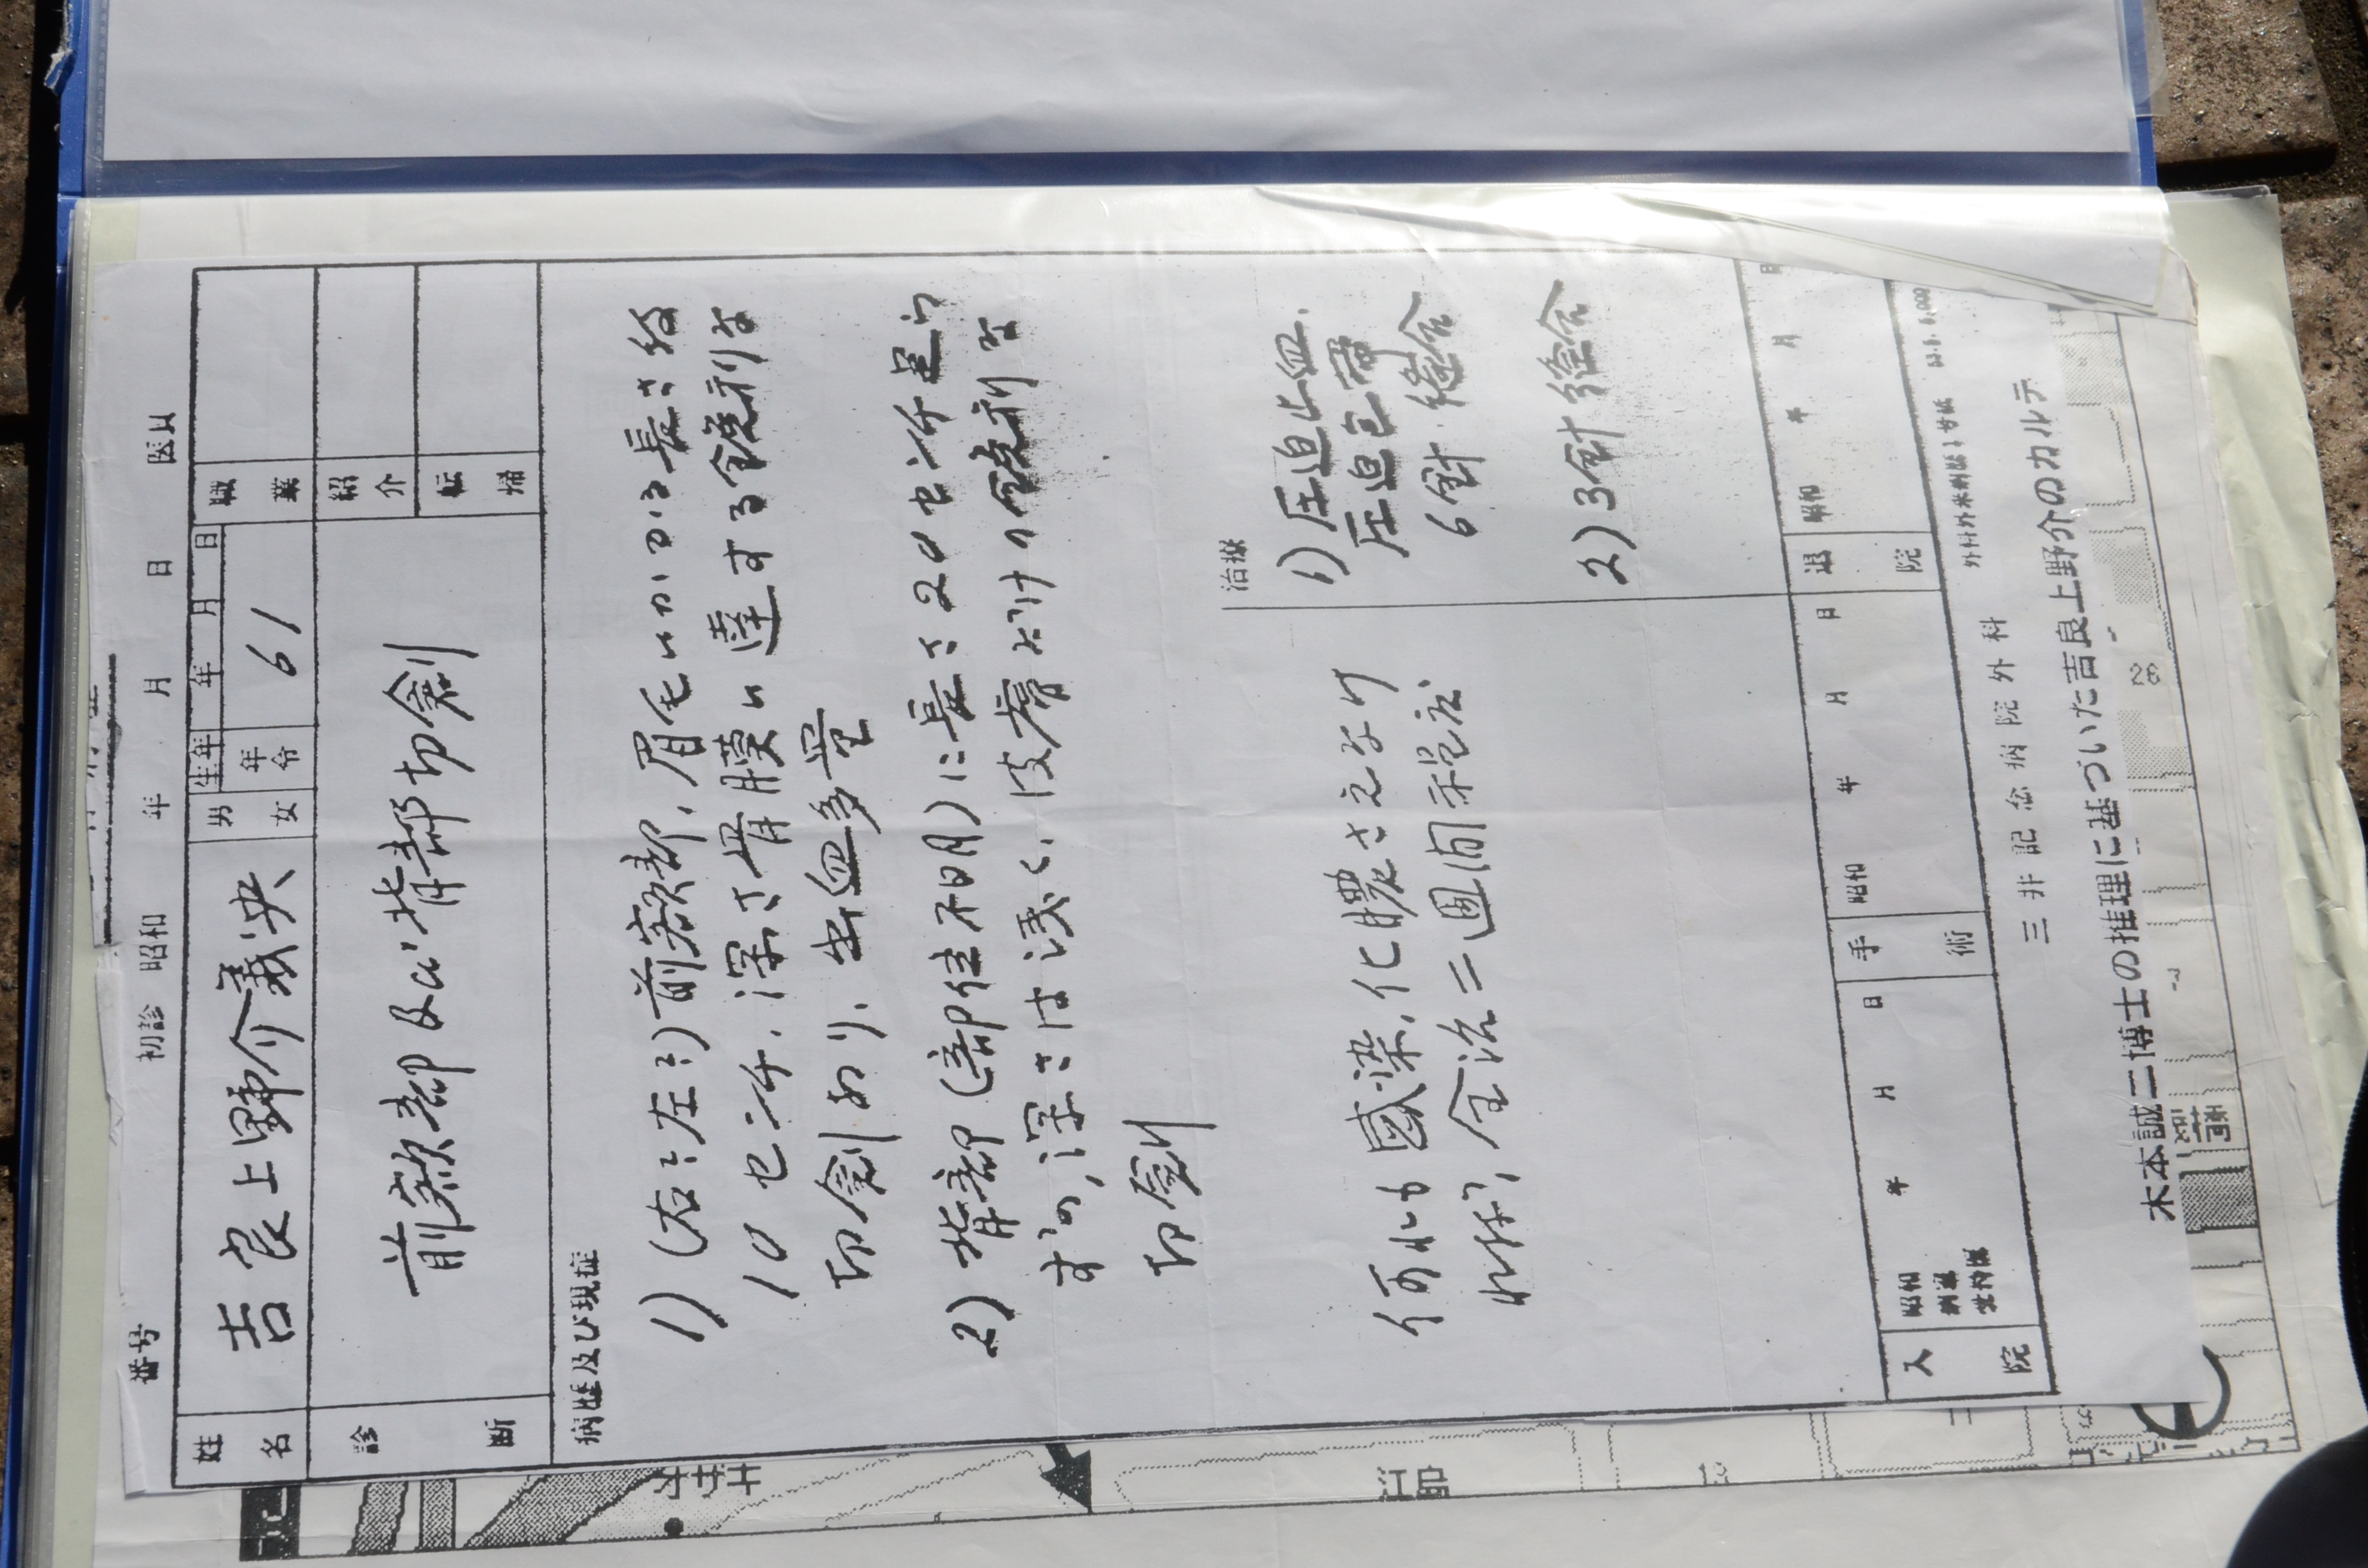 番号 初診 昭和 年 月 日 医員
姓名 吉良上野介義央 男 女 生年 年 月 日 年令 61 職業
診断 前額部及び背部切創 紹介
転帰
病歴及び現症
1) (右?左?)前額部、眉毛にかかる長さ約
10センチ、深さ骨膜に達する鋭利な
切創あり、出血多量
2) 背部(部位不明)に長さ20センチ足ら
ずの、深さは浅く、皮膚だけの鋭利な
切創
治療
1) 圧迫止血.
圧迫包帯
6針縫合
2) 3針縫合
何れも感染、化膿さえなけ
れば、全治二週間程度
入院 昭和 年 月 日 手術 昭和 年 月 日 退院 昭和 年 月 日
三井記念病院外科
木本誠二博士の推理に基づいた吉良上野介のカルテ
26